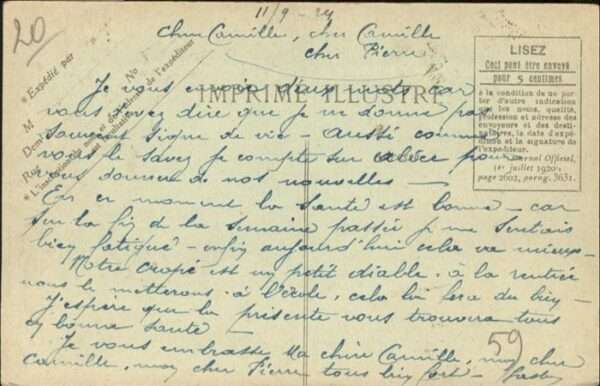 20
11/9 - 24
Chère Camille, cher Camille
cher Pierre
* Expédié par
M
Dem
IMPRIMÉ ILLUSTRÉ
LISEZ
Ceci peut être envoyé
pour 5 centimes
à la condition de ne por-
ter d'autre indication
que les noms, qualité,
profession et adresse des
envoyeurs et des desti-
nataires, la date d'expé-
dition et la signature de
l'expéditeur.
Journal Officiel,
1er juillet 1920:
page 2602, parag. 3631.
Je vous envoie deux mots car
vous devez dire que je ne donne pas
souvent signe de vie - Aussi comme
vous le savez je compte sur pour
vous donner de nos nouvelles -
En ce moment la santé est bonne - car
sur la fin de la semaine passée je me sentais
bien fatigué - enfin aujourd'hui cela va mieux -
Notre est un petit diable - à la rentrée
nous le metterons à l'école, cela lui fera du bien -
J'espère que la présente vous trouvera tous
en bonne santé -
59
Je vous embrasse Ma chère Camille, mon cher
Camille, mon cher Pierre tous bien fort -